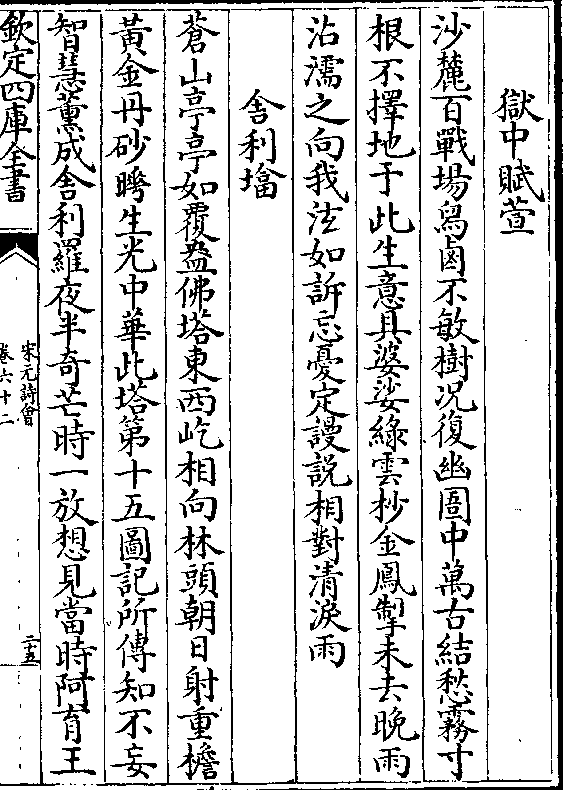 獄中賦萱
沙麓百戰場舄鹵不敏樹况復幽圄中萬古結愁霧寸
根不擇地于此生意具婆娑綠雲杪金鳳掣未去晩雨
沾濡之向我泫如訴忘憂定謾説相對清淚雨
舍利塔
蒼山亭亭如覆盎佛塔東西屹相向林頭朝日射重檐
黄金丹砂晻生光中華此塔第十五圖記所傳知不妄
智慧薰成舍利羅夜半奇芒時一放想見當時阿育王
欽定四庫全書
宋元詩會
卷六十二
二十五